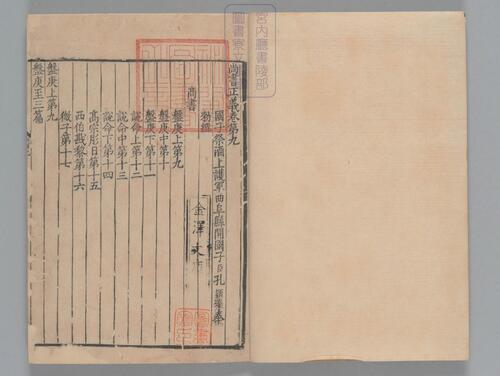 尚書正義卷第九
國子祭酒上護軍曲阜縣開國子臣孔穎達奉
勑撰
尚書
盤庚上第九
盤庚中第十
盤庚下第十一
說命上第十二
說命中第十三
說命下第十四
高宗肜日第十五
西伯戡黎第十六
微子第十七
盤庚上第九
盤庚至三篇
金澤文
宮内廳書陵部
圖書寮